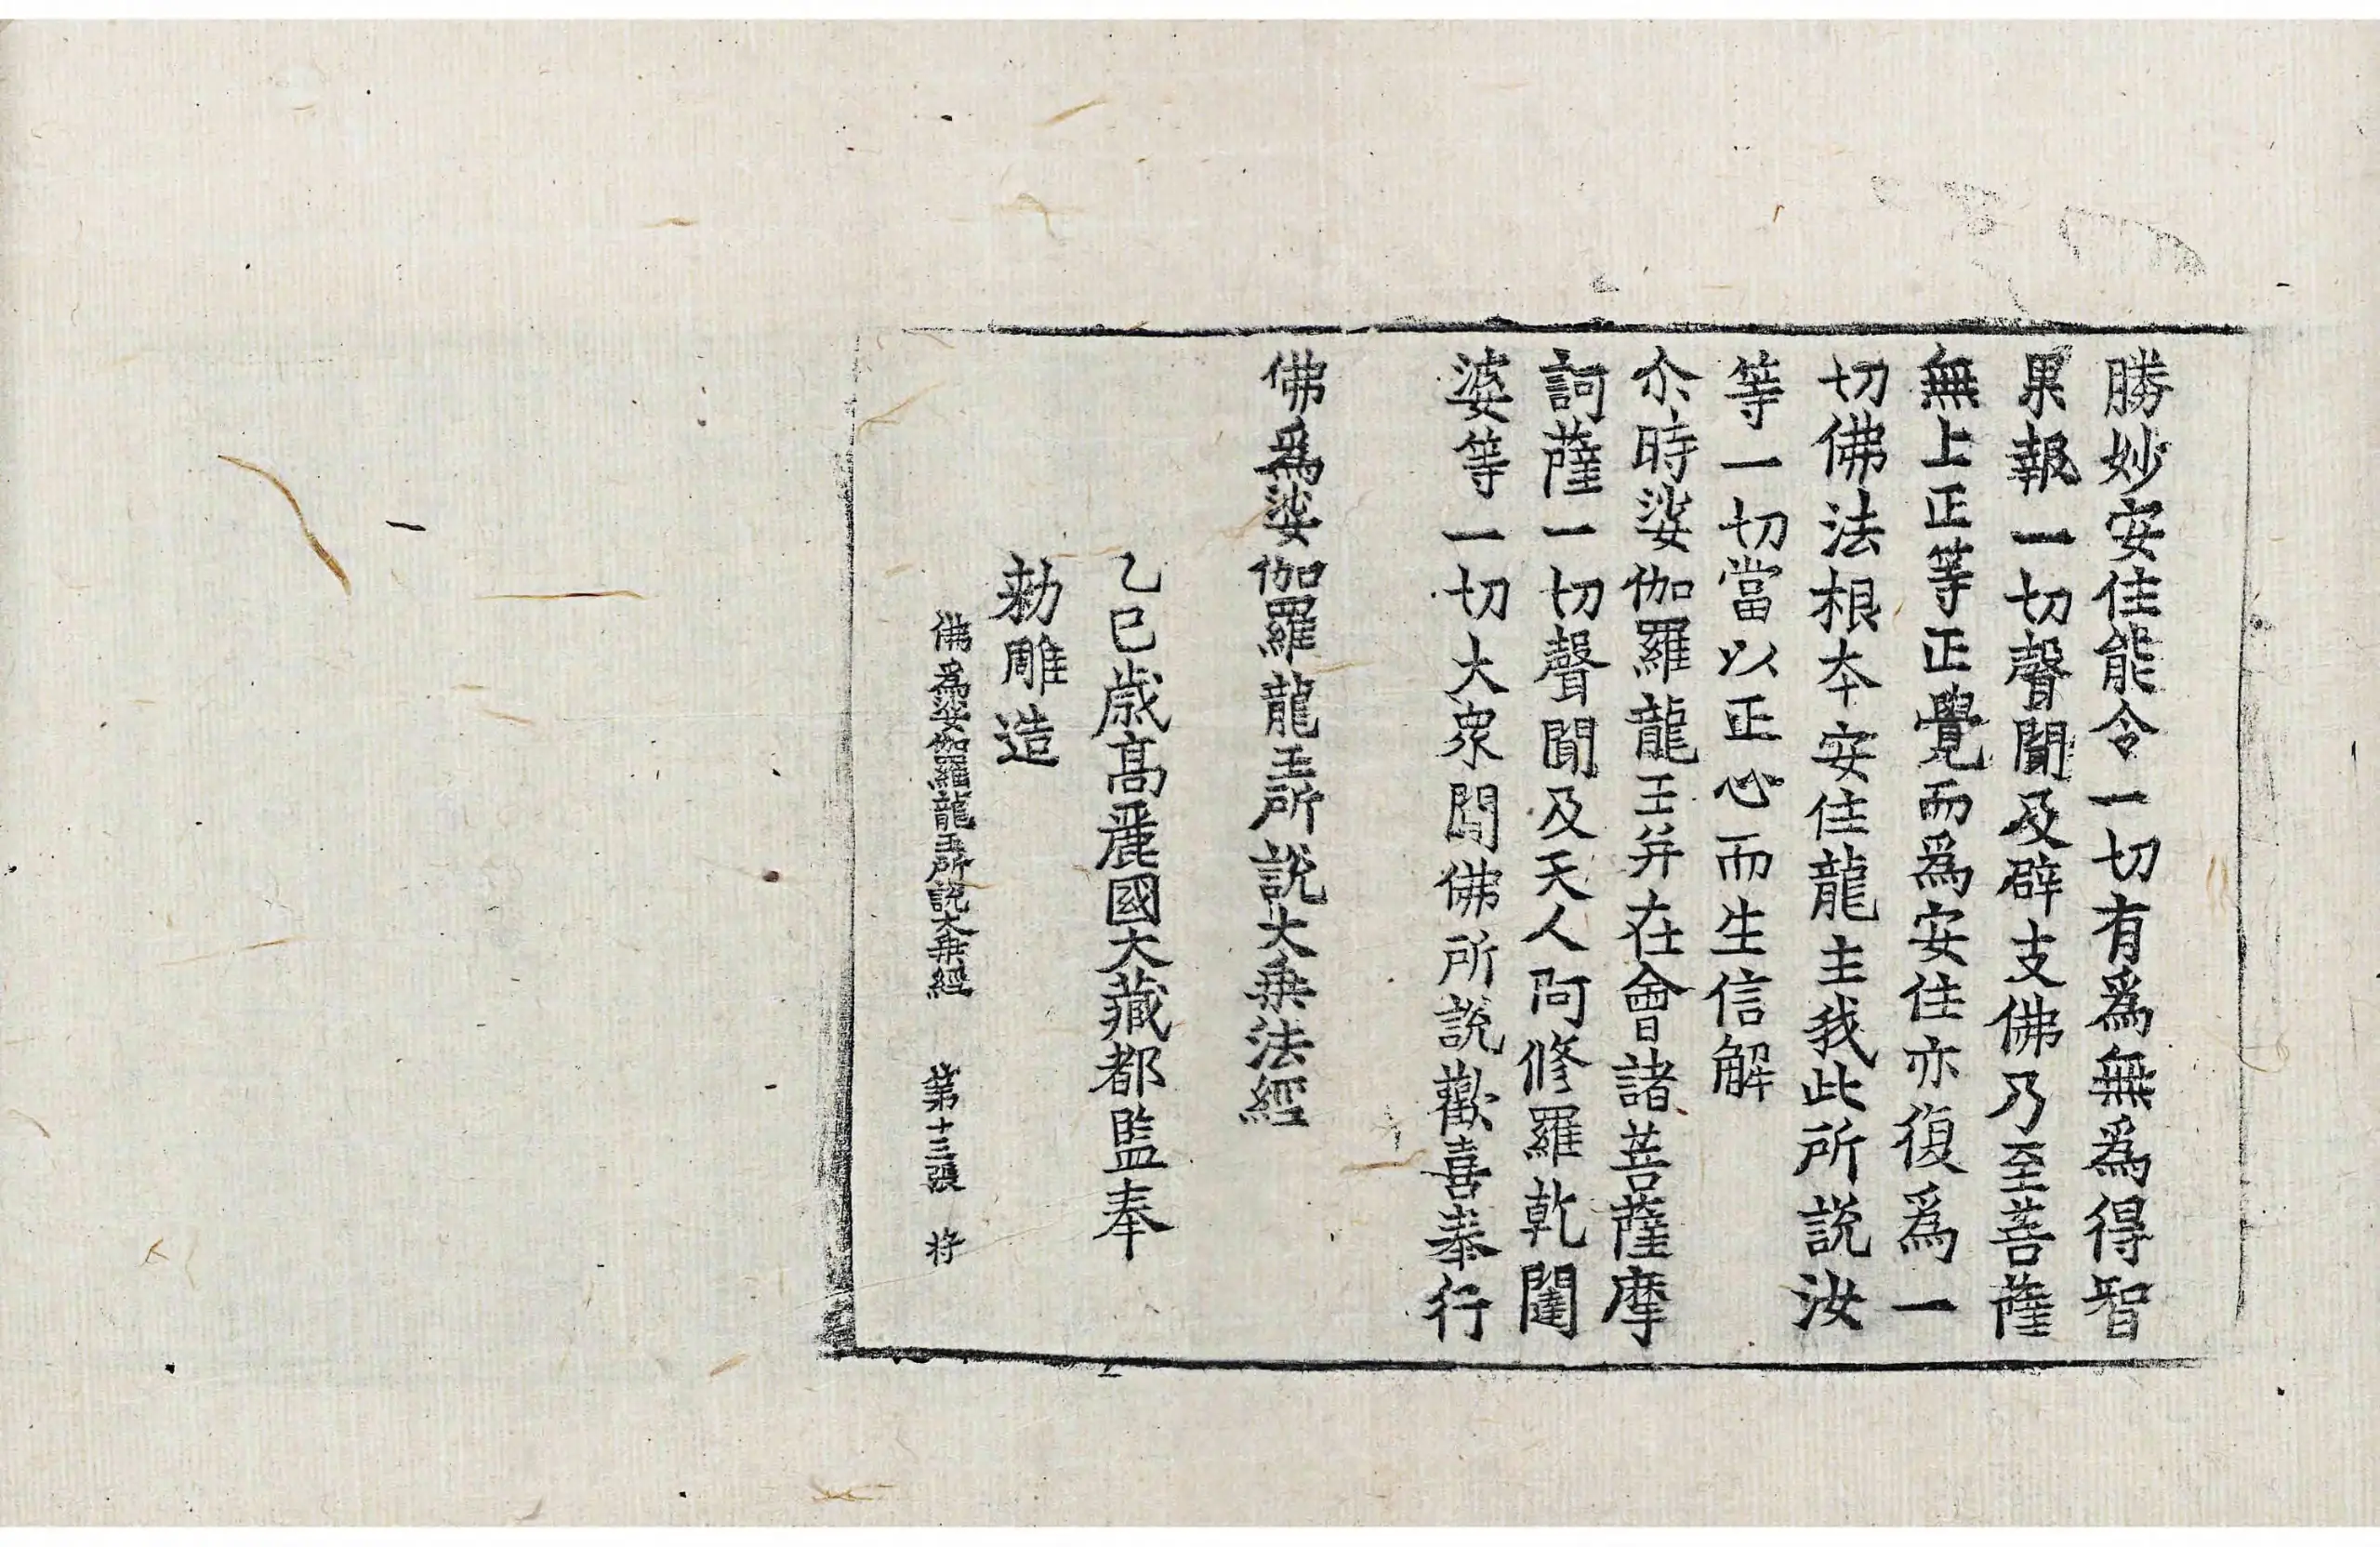 勝妙安住能令一切有爲無爲得智
果報一切聲聞及辟支佛乃至菩薩
無上正等正覺而爲安住亦復爲一
切佛法根本安住龍主我此所説汝
等一切當以正心而生信解
尒時娑伽羅龍王并在會諸菩薩摩
訶薩一切聲聞及天人阿修羅乾闥
婆等一切大衆聞佛所説歡喜奉行
佛爲娑伽羅龍王所説大乗法經
乙巳歳髙麗國大藏都監奉
勑雕造
佛爲娑伽羅龍王所説大乗經 第十三張 将